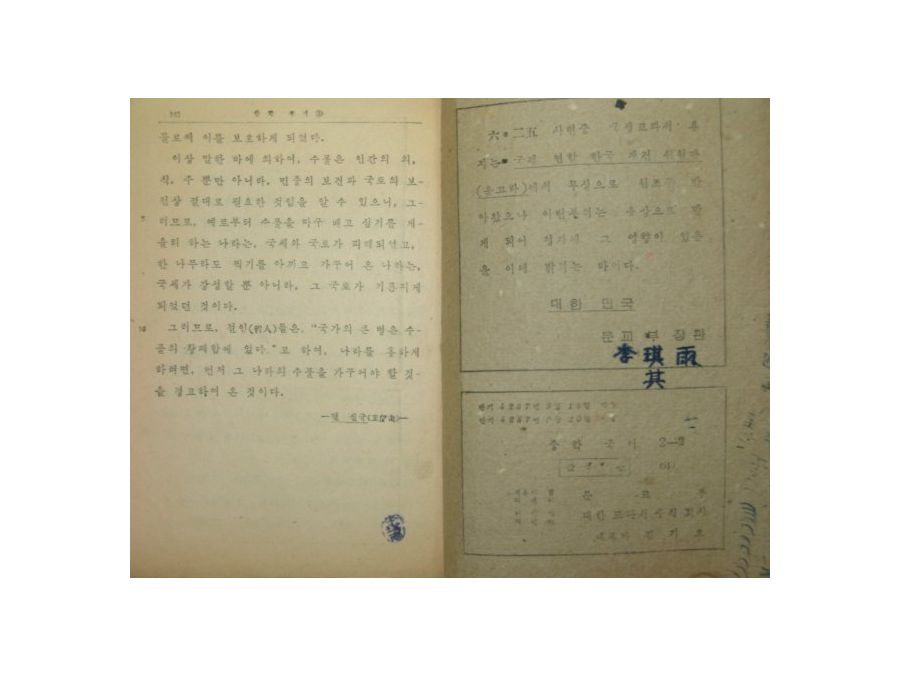 들로써 이를 보호하게 되었다.
이상 말한 바에 의하여, 수풀은 인간의 의,
식, 주 뿐만 아니라, 민중의 보건과 국토의 보-
전상 절대로 필요한 것임을 알 수 있으니, 그-
러므로, 예로부터 수풀을 마구 베고 심기를 게-
을리 하는 나라는, 국세와 국토가 피폐되었고,
한 나무라도 찍기를 아끼고 가꾸어 온 나라는,
국세가 강성할 뿐 아니라, 그 국토가 기름지게
되었던 것이다.
그러므로, 철인(哲人)들은, “국가의 큰 병은 수-
풀의 황폐함에 있다.”고 하여, 나라를 흥하게
하려면, 먼저 그 나라의 수풀을 가꾸어야 할 것-
을 경고하여 온 것이다.
六•二五 사변중 국정교과서 용
지는 국제 연합 한국 재건 위원단
(운끄라)에서 무상으로 원조를 받
아 왔으나 이번분의는 유상으로 받
게 되어 정가에 그 영향이 있음
을 이에 밝히는 바이다.
대한 민국
문교부 장관
李琪雨
其
단기 4287년 3월
단기 4287년
중학 국어 2—2
문교부
대한 교과서 주식 회사
대표자 김 기 오